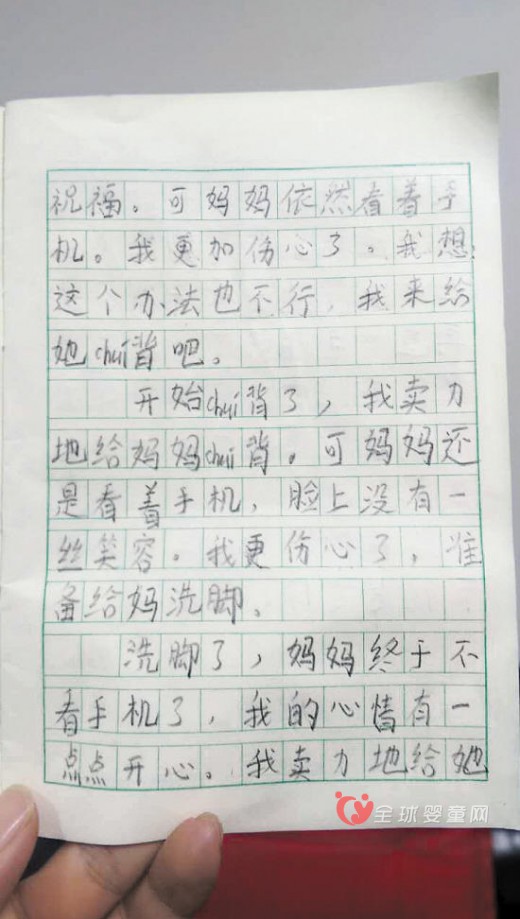 祝福。可妈妈依然看着手
机。我更加伤心了。我想：
这个办法也不行，我来给
她chuí背吧。
开始chuí背了，我卖力
地给妈妈chuí背。可妈妈还
是看着手机，脸上没有一
丝笑容。我更伤心了，准
备给妈洗脚。
洗脚了，妈妈终于不
看手机了，我的心情有一
点点开心。我卖力地给她
全球婴童网